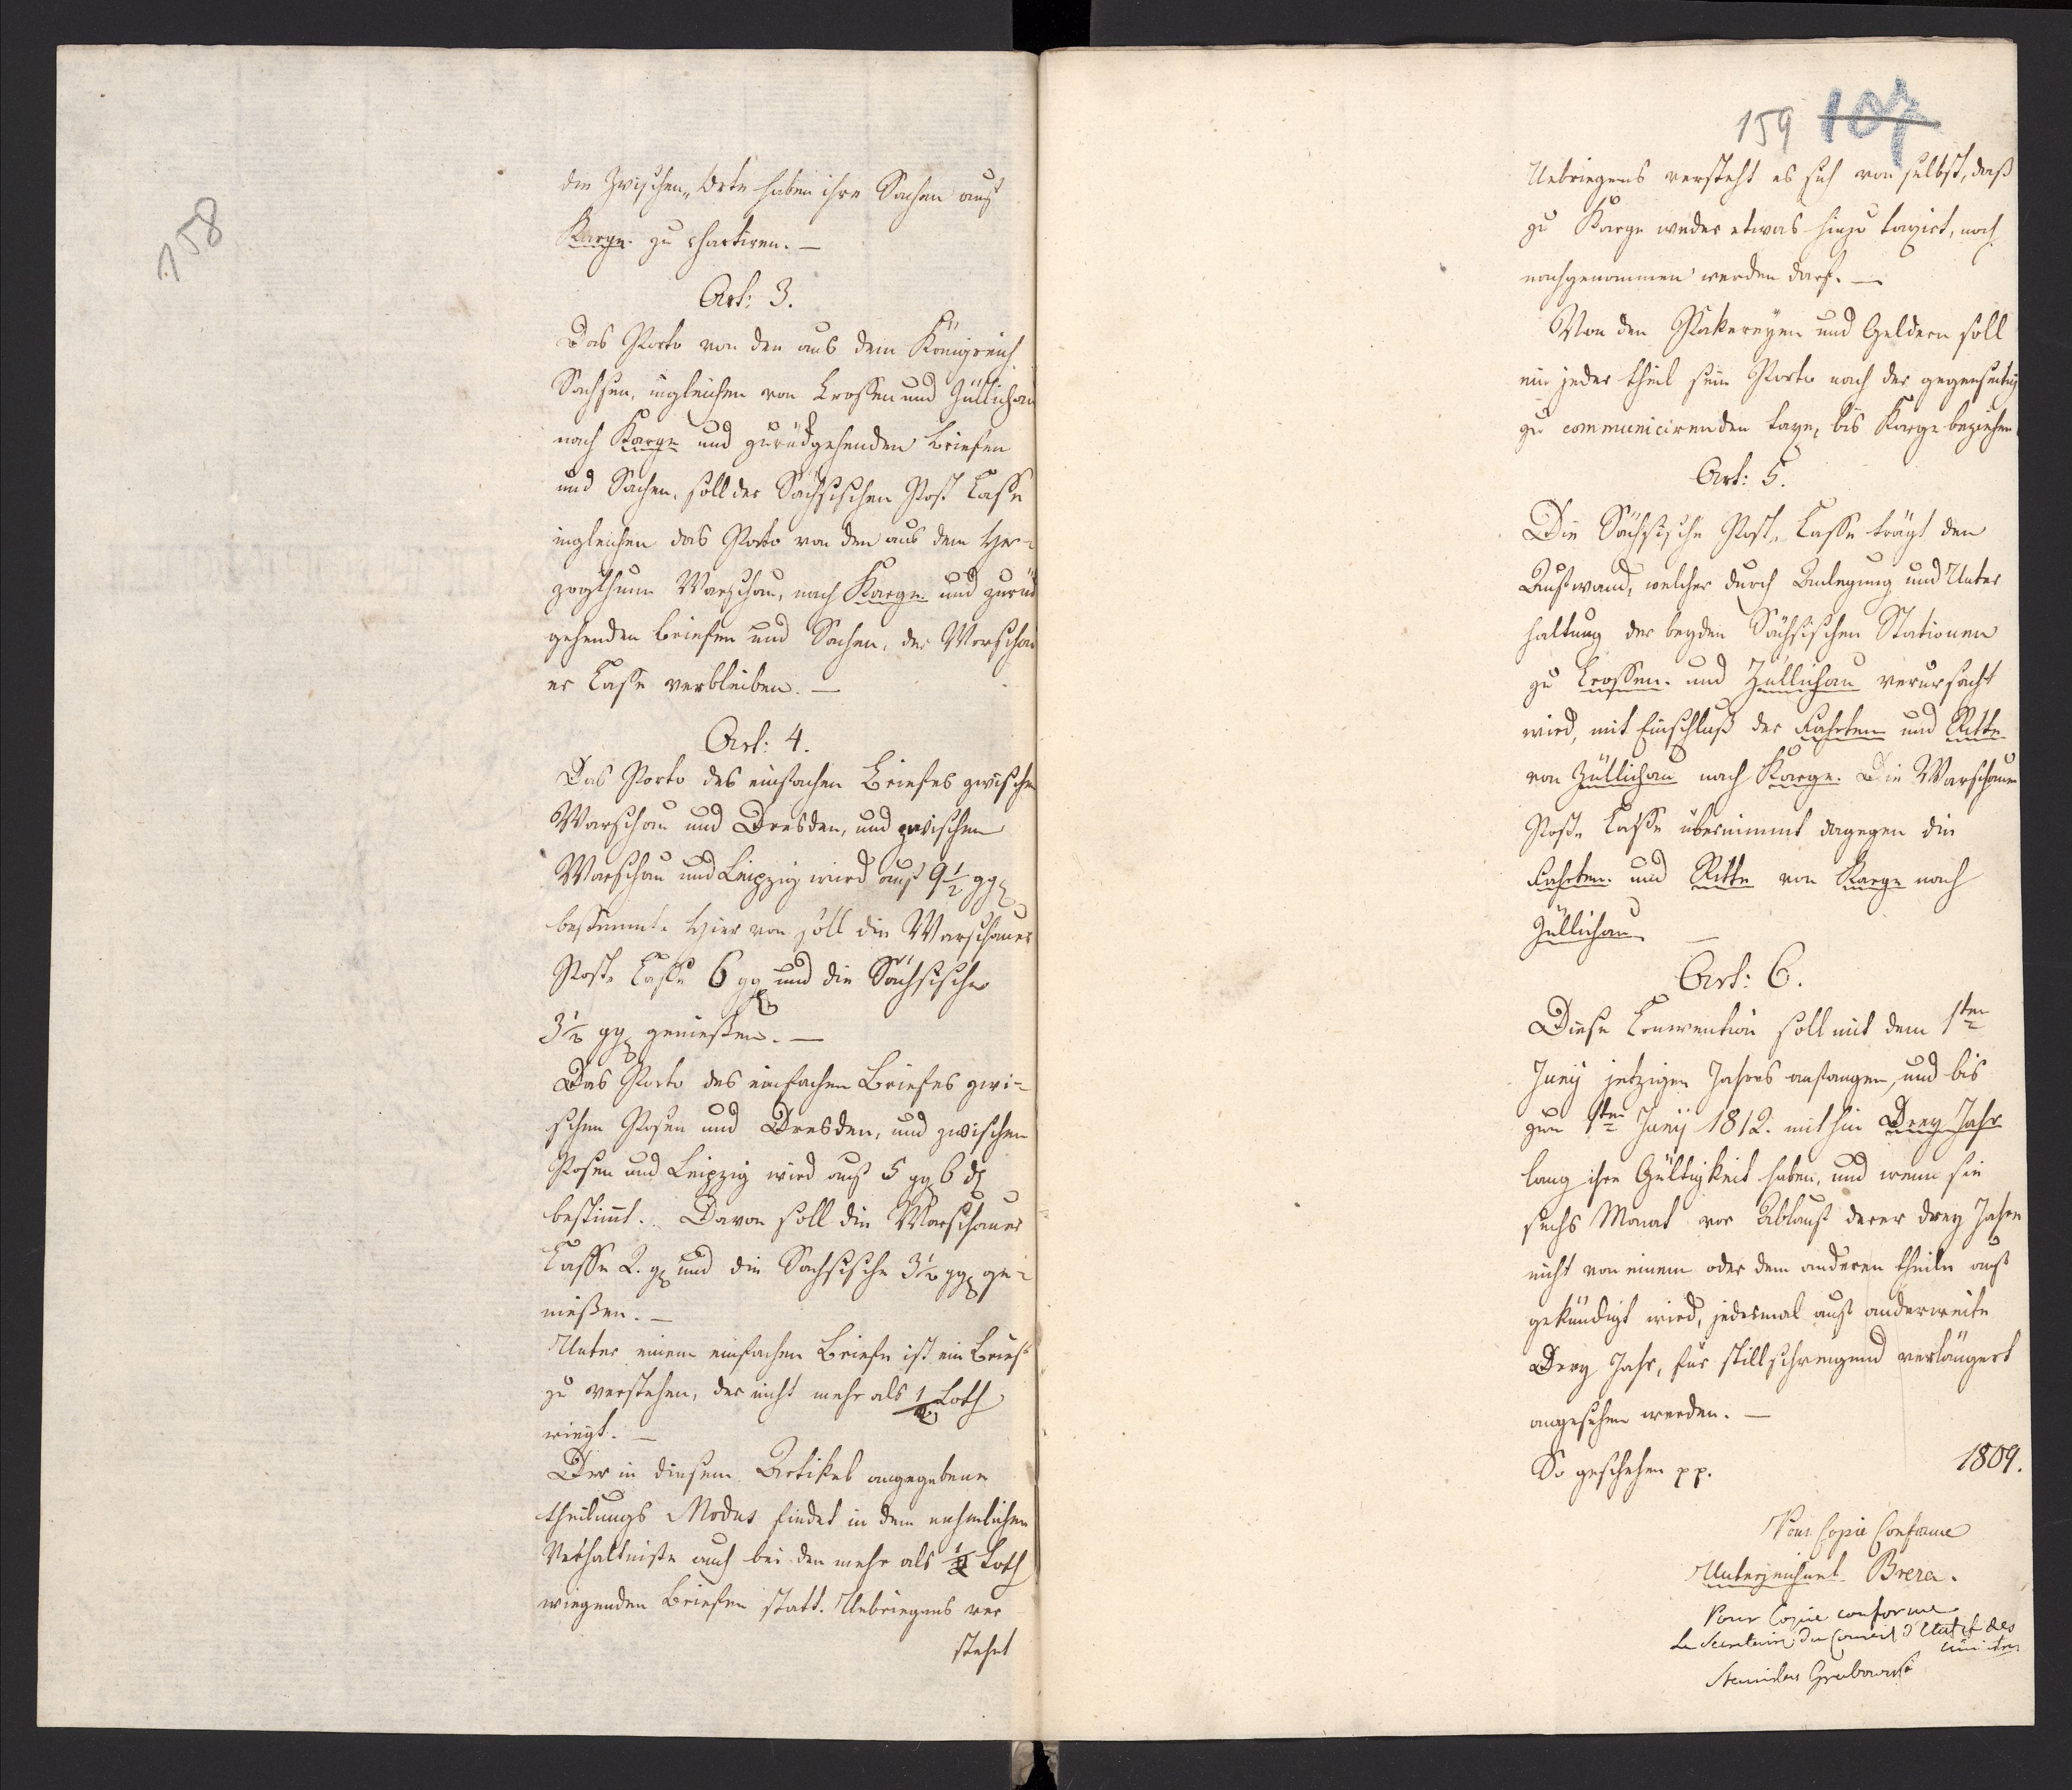 158
die Zwischen„Orte haben ihre Sachen auf
Karge zu chartiren. —
Art: 3.
Das Porto von den aus dem Königreich
Sachsen, ingleichen von Crossen und Züllichau
nach Karge und zurückgehenden Briefen
und Sachen, soll der Sächsischen Post Casse
ingleichen das Porto von den aus dem Her-
zogthum Warschau, nach Karge und zurück
gehenden Briefen und Sachen, der Warschau
er Casse verbleiben. —
Art: 4.
Das Porto des einfachen Briefes zwischen
Warschau und Dresden, und zwischen
Warschau und Leipzig wird auf 9 1/2 ggr
bestimmt. Hier von soll die Warschauer
Post Casse 6 ggr und die Sächsische
3 1/2 ggr geniessen. —
Das Porto des einfachen Briefes zwi-
schen Posen und Dresden, und zwischen
Posen und Leipzig wird auf 5 ggr 6 d
bestimt. Davon soll die Warschauer
Casse 2. gr und die Sächsische 3 1/2 ggr ge-
nießen. —
Unter einem einfachen Briefe ist ein Brief
zu verstehen, der nicht mehr als 1/2 Loth
wiegt. —
Der in diesem Artikel angegebene
theilungs Modus findet in dem nehmlichen
Verhältnisse auch bei den mehr als 1/2 Loth
wiegenden Briefen statt. Uebriegens ver
steht
159 107
Uebriegens versteht es sich von selbst, daß
zu Karge weder etwas hinzu taxirt, noch
nachgenommen werden darf. —
Von den Pakereyen und Geldern soll
ein jeder theil sein Porto nach der gegenseitig
zu communicirenden taxe, bis Karge beziehen.
Art: 5.
Die Sächsische Post-Casse trägt den
Aufwand, welcher durch Anlegung und Unter
haltung der beyden Sächsischen Stationen
zu Crossen und Züllichau verursacht
wird, mit Einschluß der Fahrten und Ritte
von Züllichau nach Karge. Die Warschauer
Post-Casse übernimmt dagegen die
Fahrten und Ritte von Karge nach
Züllichau —
Art: 6.
Diese Convention soll mit dem 1ten
Juny jetzigen Jahres anfangen, und bis
zum 1ten Juny 1812. mithin Drey Jahr
lang ihre Gültigkeit haben, und wenn sie
sechs Monat vor Ablauf derer drey Jahre
nicht von einem oder dem anderen theile auf
gekündigt wird, jedesmal auf anderweite
Drey Jahr, für stillschweigend verlängert
angesehen werden. —
So geschehen pp. 1809.
Pour Copie Conforme
Unterzeichnet Breza.
Pour Copie conforme
Le Secretaire du Conseil d'Etat et des
Ministres
Stanislas Grabowski